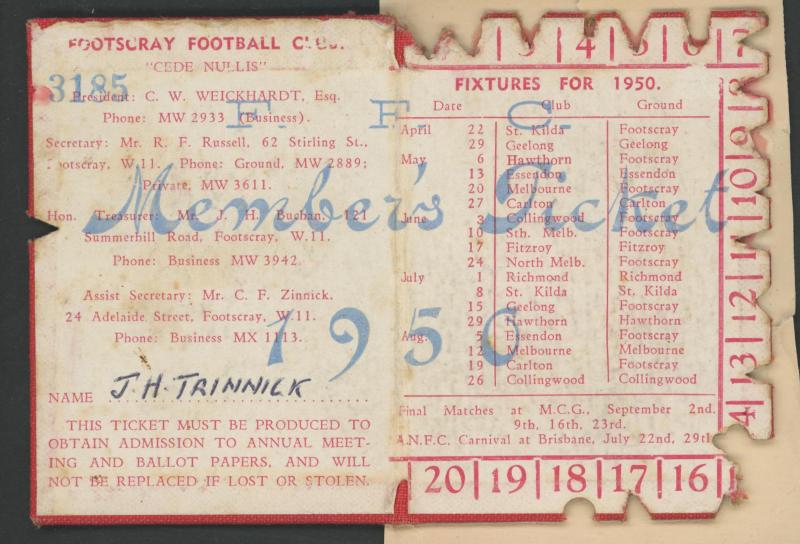 FOOTSCRAY FOOTBALL CLUB.
"CEDE NULLIS"
3185
President: C. W. WEICKHARDT, Esq.
Phone: MW 2933 (Business).
Secretary: Mr. R. F. Russell, 62 Stirling St.,
Footscray, W.11. Phone: Ground, MW 2889;
Private, MW 3611.
Hon. Treasurer: Mr. J. H. Buchan, 121
Summerhill Road, Footscray, W.11.
Phone: Business MW 3942.
Assist Secretary: Mr. C. F. Zinnick.
24 Adelaide Street, Footscray, W.11.
Phone: Business MX 1113.
NAME J. H. TRINNICK
THIS TICKET MUST BE PRODUCED TO
OBTAIN ADMISSION TO ANNUAL MEET-
ING AND BALLOT PAPERS, AND WILL
NOT BE REPLACED IF LOST OR STOLEN.
F. F. C.
Member's Ticket
1950
FIXTURES FOR 1950.
Date Club Ground
April 22 St. Kilda Footscray
29 Geelong Geelong
May 6 Hawthorn Footscray
13 Essendon Essendon
20 Melbourne Footscray
27 Carlton Carlton
June 3 Collingwood Footscray
10 Sth. Melb. Footscray
17 Fitzroy Fitzroy
24 North Melb. Footscray
July 1 Richmond Richmond
8 St. Kilda St. Kilda
15 Geelong Footscray
29 Hawthorn Hawthorn
Aug. 5 Essendon Footscray
12 Melbourne Melbourne
19 Carlton Footscray
26 Collingwood Collingwood
Final Matches at M.C.G., September 2nd,
9th, 16th, 23rd.
A.N.F.C. Carnival at Brisbane, July 22nd, 29th
3 4 5 6 7
8
9
10
11
12
13
14
20 19 18 17 16